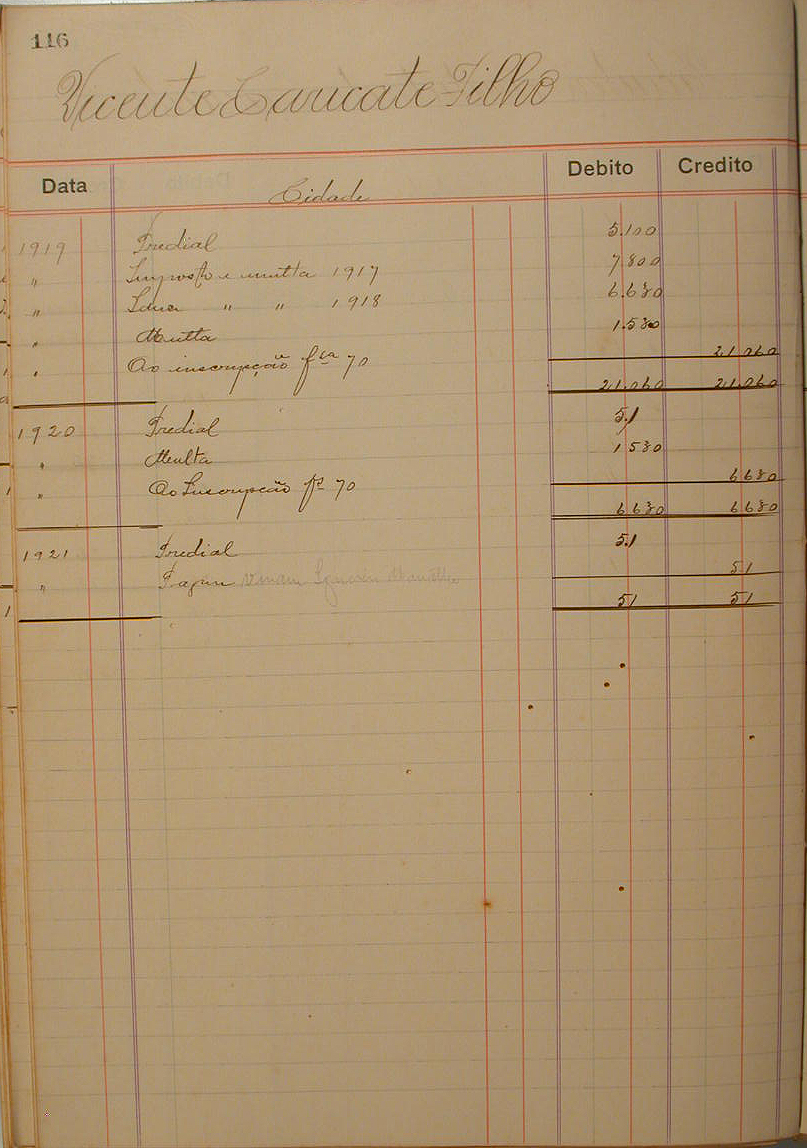 116
Vicente Caricate Filho
Data Cidade Debito Credito
1919 Predial 5.100
" Imposto e multa 1917 7.800
" Idem " " 1918 6.630
" Multa 1.530
" Ao inscripção fla 70 21.060
21.060 21.060
1920 Predial 5,1
" Multa 1530
" Ao Inscripção fa 70 6630
6630 6630
1921 Predial 5,1
" Pagou 5,1
5,1 5,1